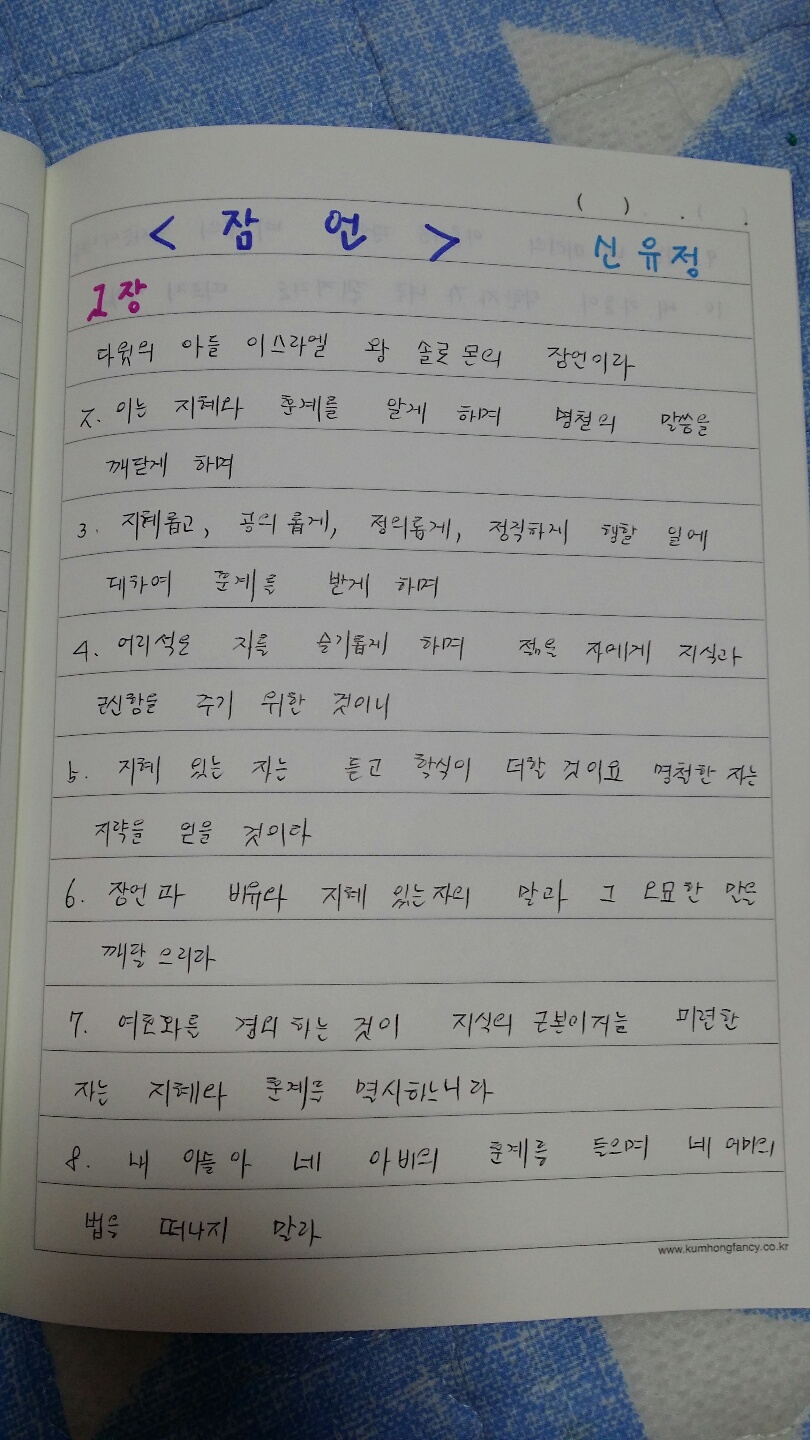 ( ) . .
< 잠 언 > 신유정
1장
다윗의 아들 이스라엘 왕 솔로몬의 잠언이라
2. 이는 지혜와 훈계를 알게 하며 명철의 말씀을
깨닫게 하며
3. 지혜롭고, 공의롭게, 정의롭게, 정직하게 행할 일에
대하여 훈계를 받게 하며
4. 어리석은 자를 슬기롭게 하며 젊은 자에게 지식과
근신함을 주기 위한 것이니
5. 지혜 있는 자는 듣고 학식이 더할 것이요 명철한 자는
지략을 얻을 것이라
6. 잠언과 비유와 지혜 있는자의 말과 그 오묘한 말을
깨달으리라
7. 여호와를 경외하는 것이 지식의 근본이거늘 미련한
자는 지혜와 훈계를 멸시하느니라
8. 내 아들아 네 아비의 훈계를 들으며 네 어미의
법을 떠나지 말라
www.kumhongfancy.co.kr